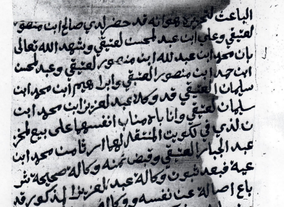 الباعث لتحريره هو انه قد حضر لدي صالح ابن منصور
العتيقي وعلي ابن عبد المحسن العتيقي وشهد الله تعالى
بان محمد ابن عبد الله ابن منصور العتيقي وعبد المحسن
ابن حمد ابن منصور العتيقي وابراهيم ابن محمد ابن
سليمان العتيقي قد وكلا عبد العزيز ابن محمد ابن
سليمان العتيقي وانا باه مناب انفسهما على بيع
الذي في الكويت المنتقل لهما ارث من محمد ابن
عبد الجبار العتيقي وقبض ثمنه وكالة صحيحة شر
عية فبعد ثبوت وكالة عبد العزيز المذكور قد
باع اصالة عن نفسه ووكالة